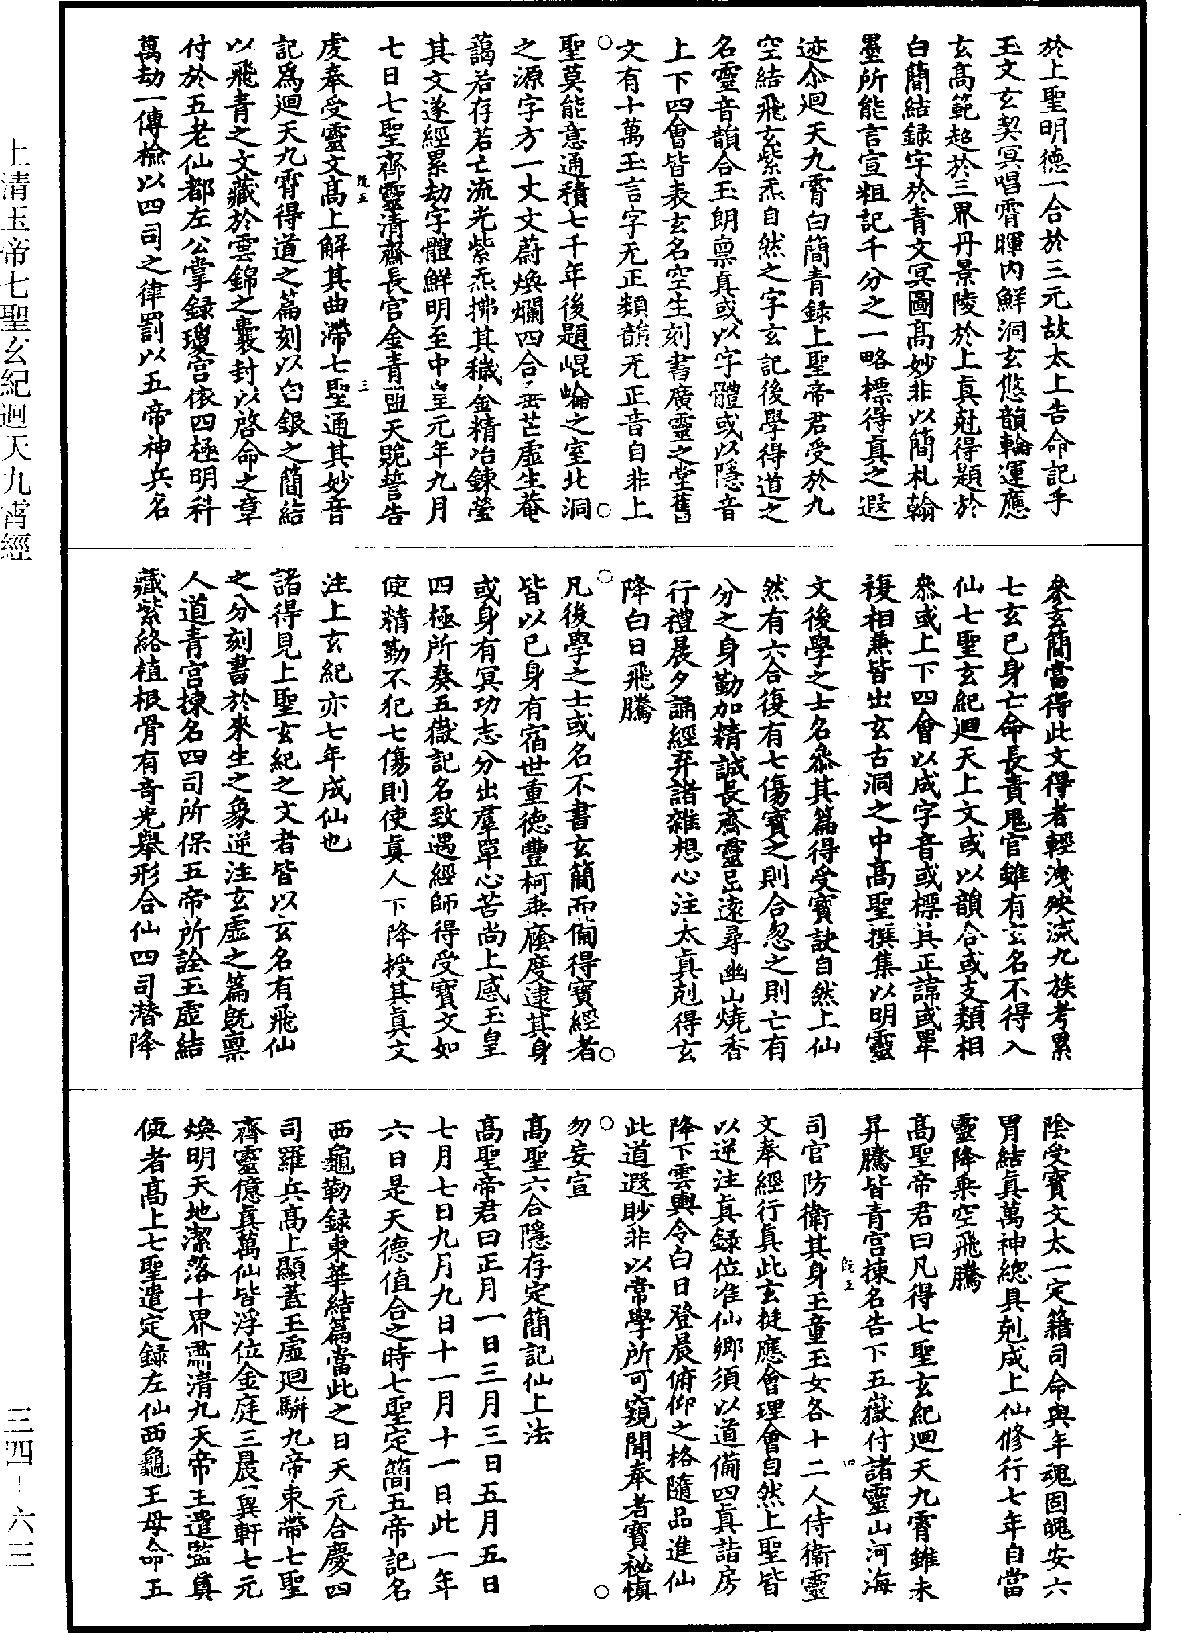 於上聖明德一合於三元故太上告命記乎
玉文玄契冥唱霄暉內鮮洞玄悠韻輪運應
玄高範超於三界丹景陵於上真尅得題於
白簡結録字於青文冥圖高妙非以簡札翰
墨所能言宣粗記千分之一略標得真之遐
迹尒迴天九霄白簡青録上聖帝君受於九
空結飛玄紫炁自然之字玄記後學得道之
名靈音韻合玉朗稟真或以字體或以隱音
上下四會皆表玄名空生刻書廣靈之堂舊
文有十萬玉言字无正類韻无正音自非上
聖莫能意通積七千年後題崐崘之室北洞
之源字方一丈文蔚煥爛四合垂芒虛生菴
藹若存若亡流光紫炁拂其穢金精冶鍊瑩
其文遂經累劫字體鮮明至中皇元年九月
七日七聖齊靈清齋長宮金青盟天貺誓告
虔奉受靈文高上解其曲滯七聖通其妙音
記爲迴天九霄得道之篇刻以白銀之簡結
以飛青之文藏於雲錦之囊封以啓命之章
付於五老仙都左公掌録瓊宮依四極明科
萬劫一傳檢以四司之律罰以五帝神兵名
參玄簡當得此文得者輕洩殃流九族考累
七玄已身亡命長責鬼官雖有玄名不得入
仙七聖玄紀迴天上文或以韻合或支類相
叅或上下四會以成字音或標其正諱或單
複相兼皆出玄古洞之中高聖撰集以明靈
文後學之士名叅其篇得受寶訣自然上仙
然有六合復有七傷寶之則合忽之則亡有
分之身勤加精誠長齋靈岳遠尋幽山燒香
行禮晨夕誦經弃諸雜想心注太真剋得玄
降白日飛騰
凡後學之士或名不書玄簡而備得寶經者
皆以已身有宿世重德豐柯乗蔭度逮其身
或身有冥功志分出羣單心苦尚上感玉皇
四極所奏五嶽記名致遇經師得受寶文如
使精勤不犯七傷則使真人下降授其真文
注上玄紀亦七年成仙也
諸得見上聖玄紀之文者皆以玄名有飛仙
之分刻書於來生之象逆注玄虛之篇旣稟
人道青宮揀名四司所保五帝所詮玉虛結
藏紫絡植根骨有奇光舉形合仙四司潛降
陰受寶文太一定籍司命與年魂固魄安六
胃結真萬神總具剋成上仙修行七年自當
靈降乗空飛騰
高聖帝君曰凡得七聖玄紀迴天九霄雖未
昇騰皆青宮揀名告下五嶽付諸靈山河海
司官防衛其身玉童玉女各十二人侍衛靈
文奉經行真此玄挺應會理會自然上聖皆
以逆注真録位准仙鄉須以道備四真詣房
降下雲輿令白日登晨俯仰之格隨品進仙
此道遐眇非以常學所可窺聞奉者寶祕慎
勿妄宣
高聖六合隱存定簡記仙上法
高聖帝君曰正月一日三月三日五月五日
七月七日九月九日十一月十一日此一年
六日是天德值合之時七聖定簡五帝記名
西龜勒録東華結篇當此之日天元合慶四
司羅兵高上顯蓋玉虛迴駢九帝束帶七聖
齊靈億真萬仙皆浮位金庭三晨異軒七元
煥明天地潔落十界肅清九天帝王遣監真
使者高上七聖遣定録左仙西龜王母命五
上清玉帝七聖玄紀迴天九霄經
三四-六三